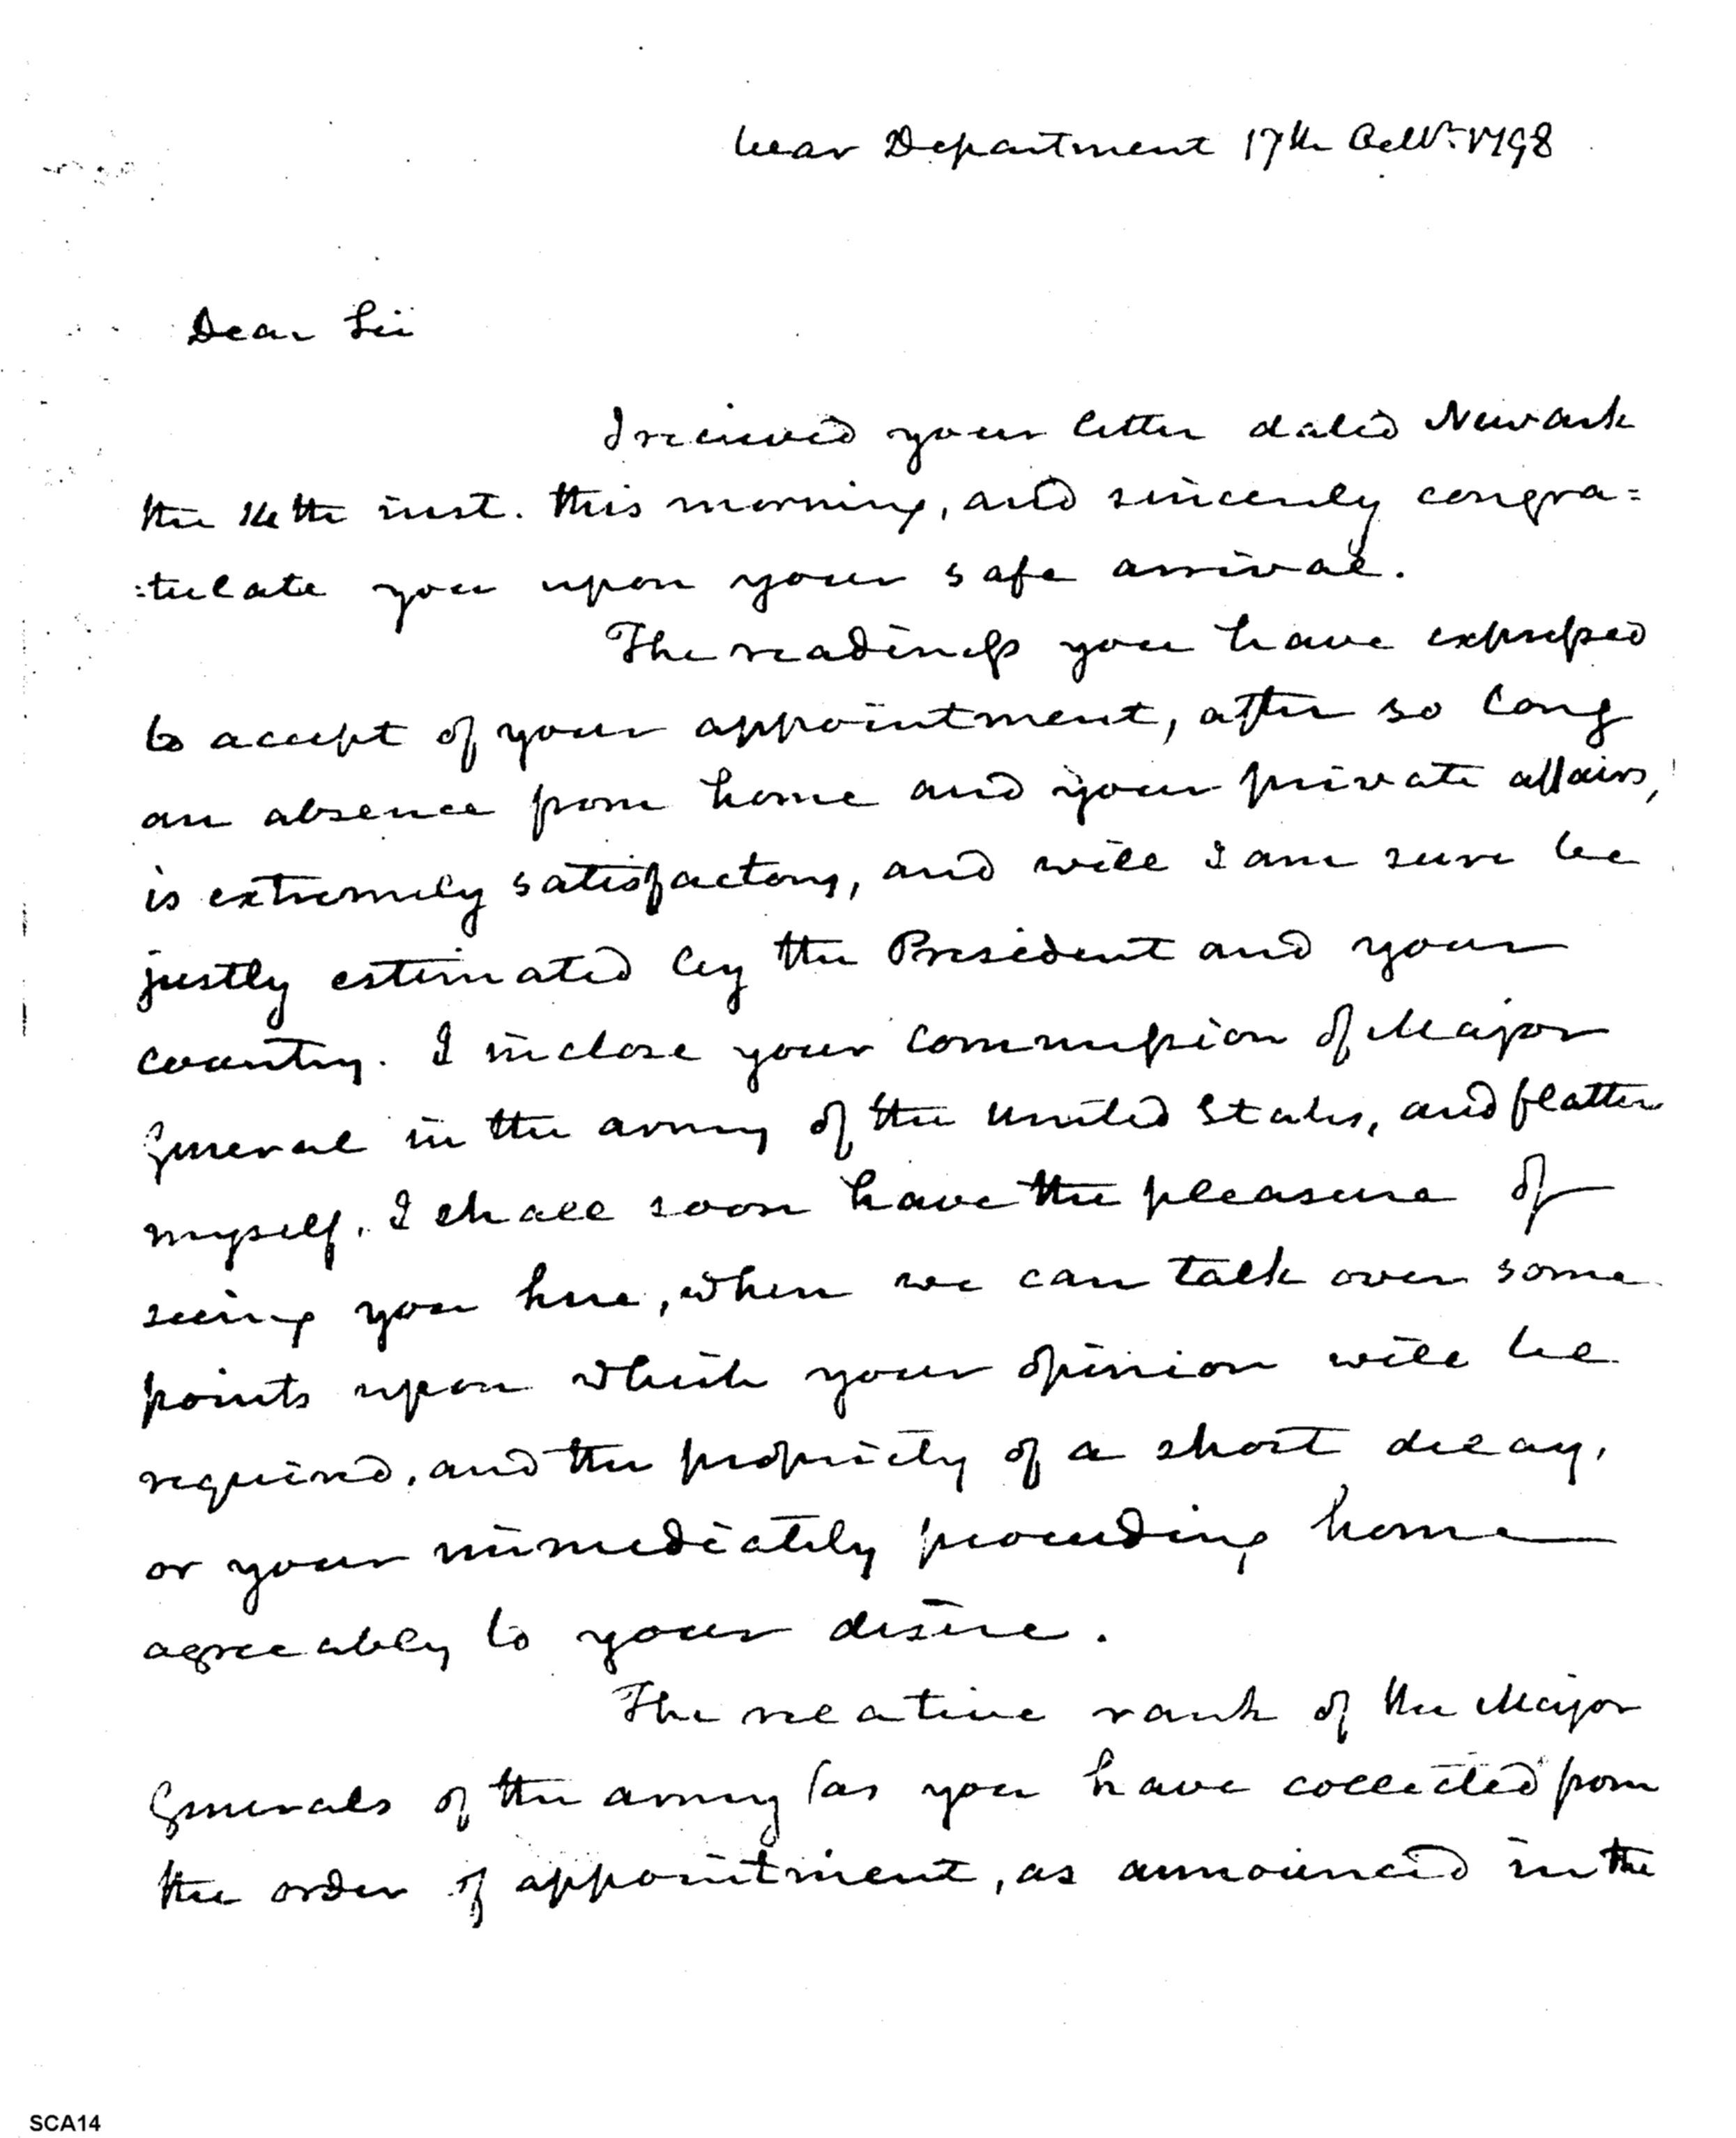 War Department 17th Octr. 1798
Dear Sir
I received your letter dated Newark
the 14th inst. this morning, and sincerely congra=
=tulate you upon your safe arrival.
The readiness you have expressed
to accept of your appointment, after so long
an absence from home and your private affairs,
is extremely satisfactory, and will I am sure be
justly estimated by the President and your
country. I inclose your commission of Major
General in the army of the United States, and flatter
myself, I shall soon have the pleasure of
seeing you here, when we can talk over some
points upon which your opinion will be
required, and the propriety of a short delay,
or your immediately proceeding home
agreeably to your desire.
The relative rank of the Major
Generals of the army (as you have collected from
the order of appointment, as announced in the
SCA14